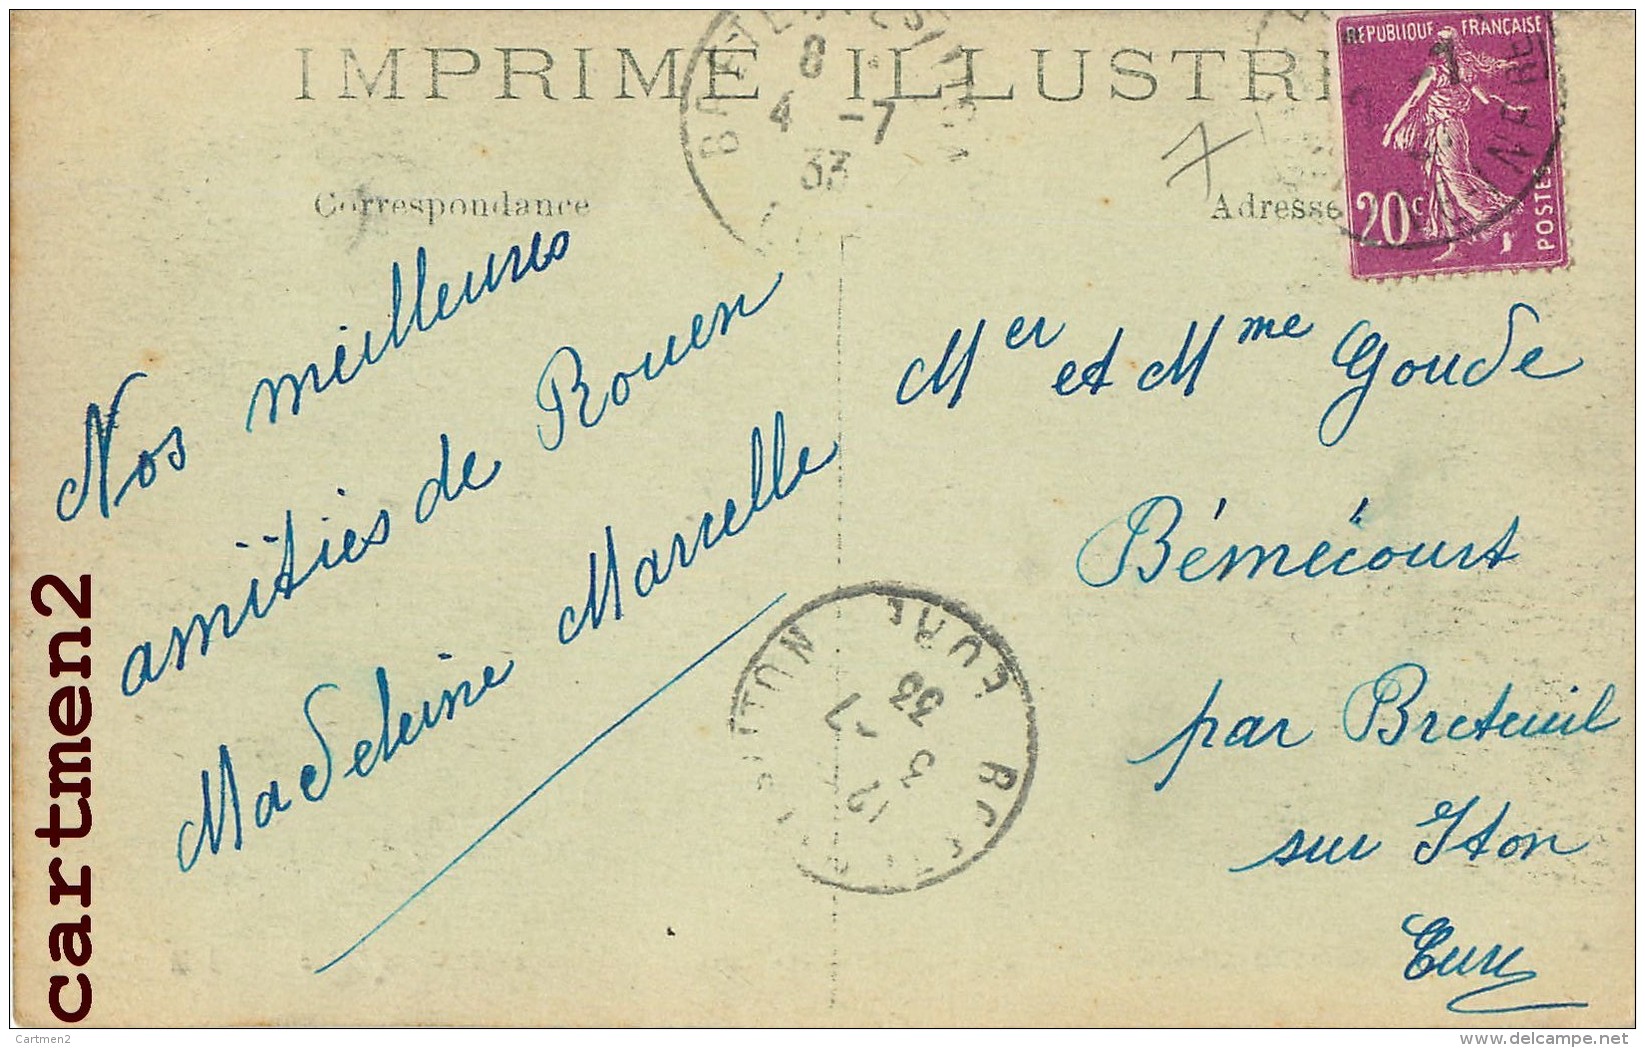 IMPRIMÉ ILLUSTRÉ
8
4 -7
33
RÉPUBLIQUE FRANÇAISE
20c
POSTES
Correspondance
Adresse
Nos meilleures
amitiés de Rouen
Madeleine Marcelle
Mer et Mme Goude
Bémécourt
par Breteuil
sur Iton
Eure
EURE
12
3 -7
33
cartmen2
Cartmen2
delcampe.net